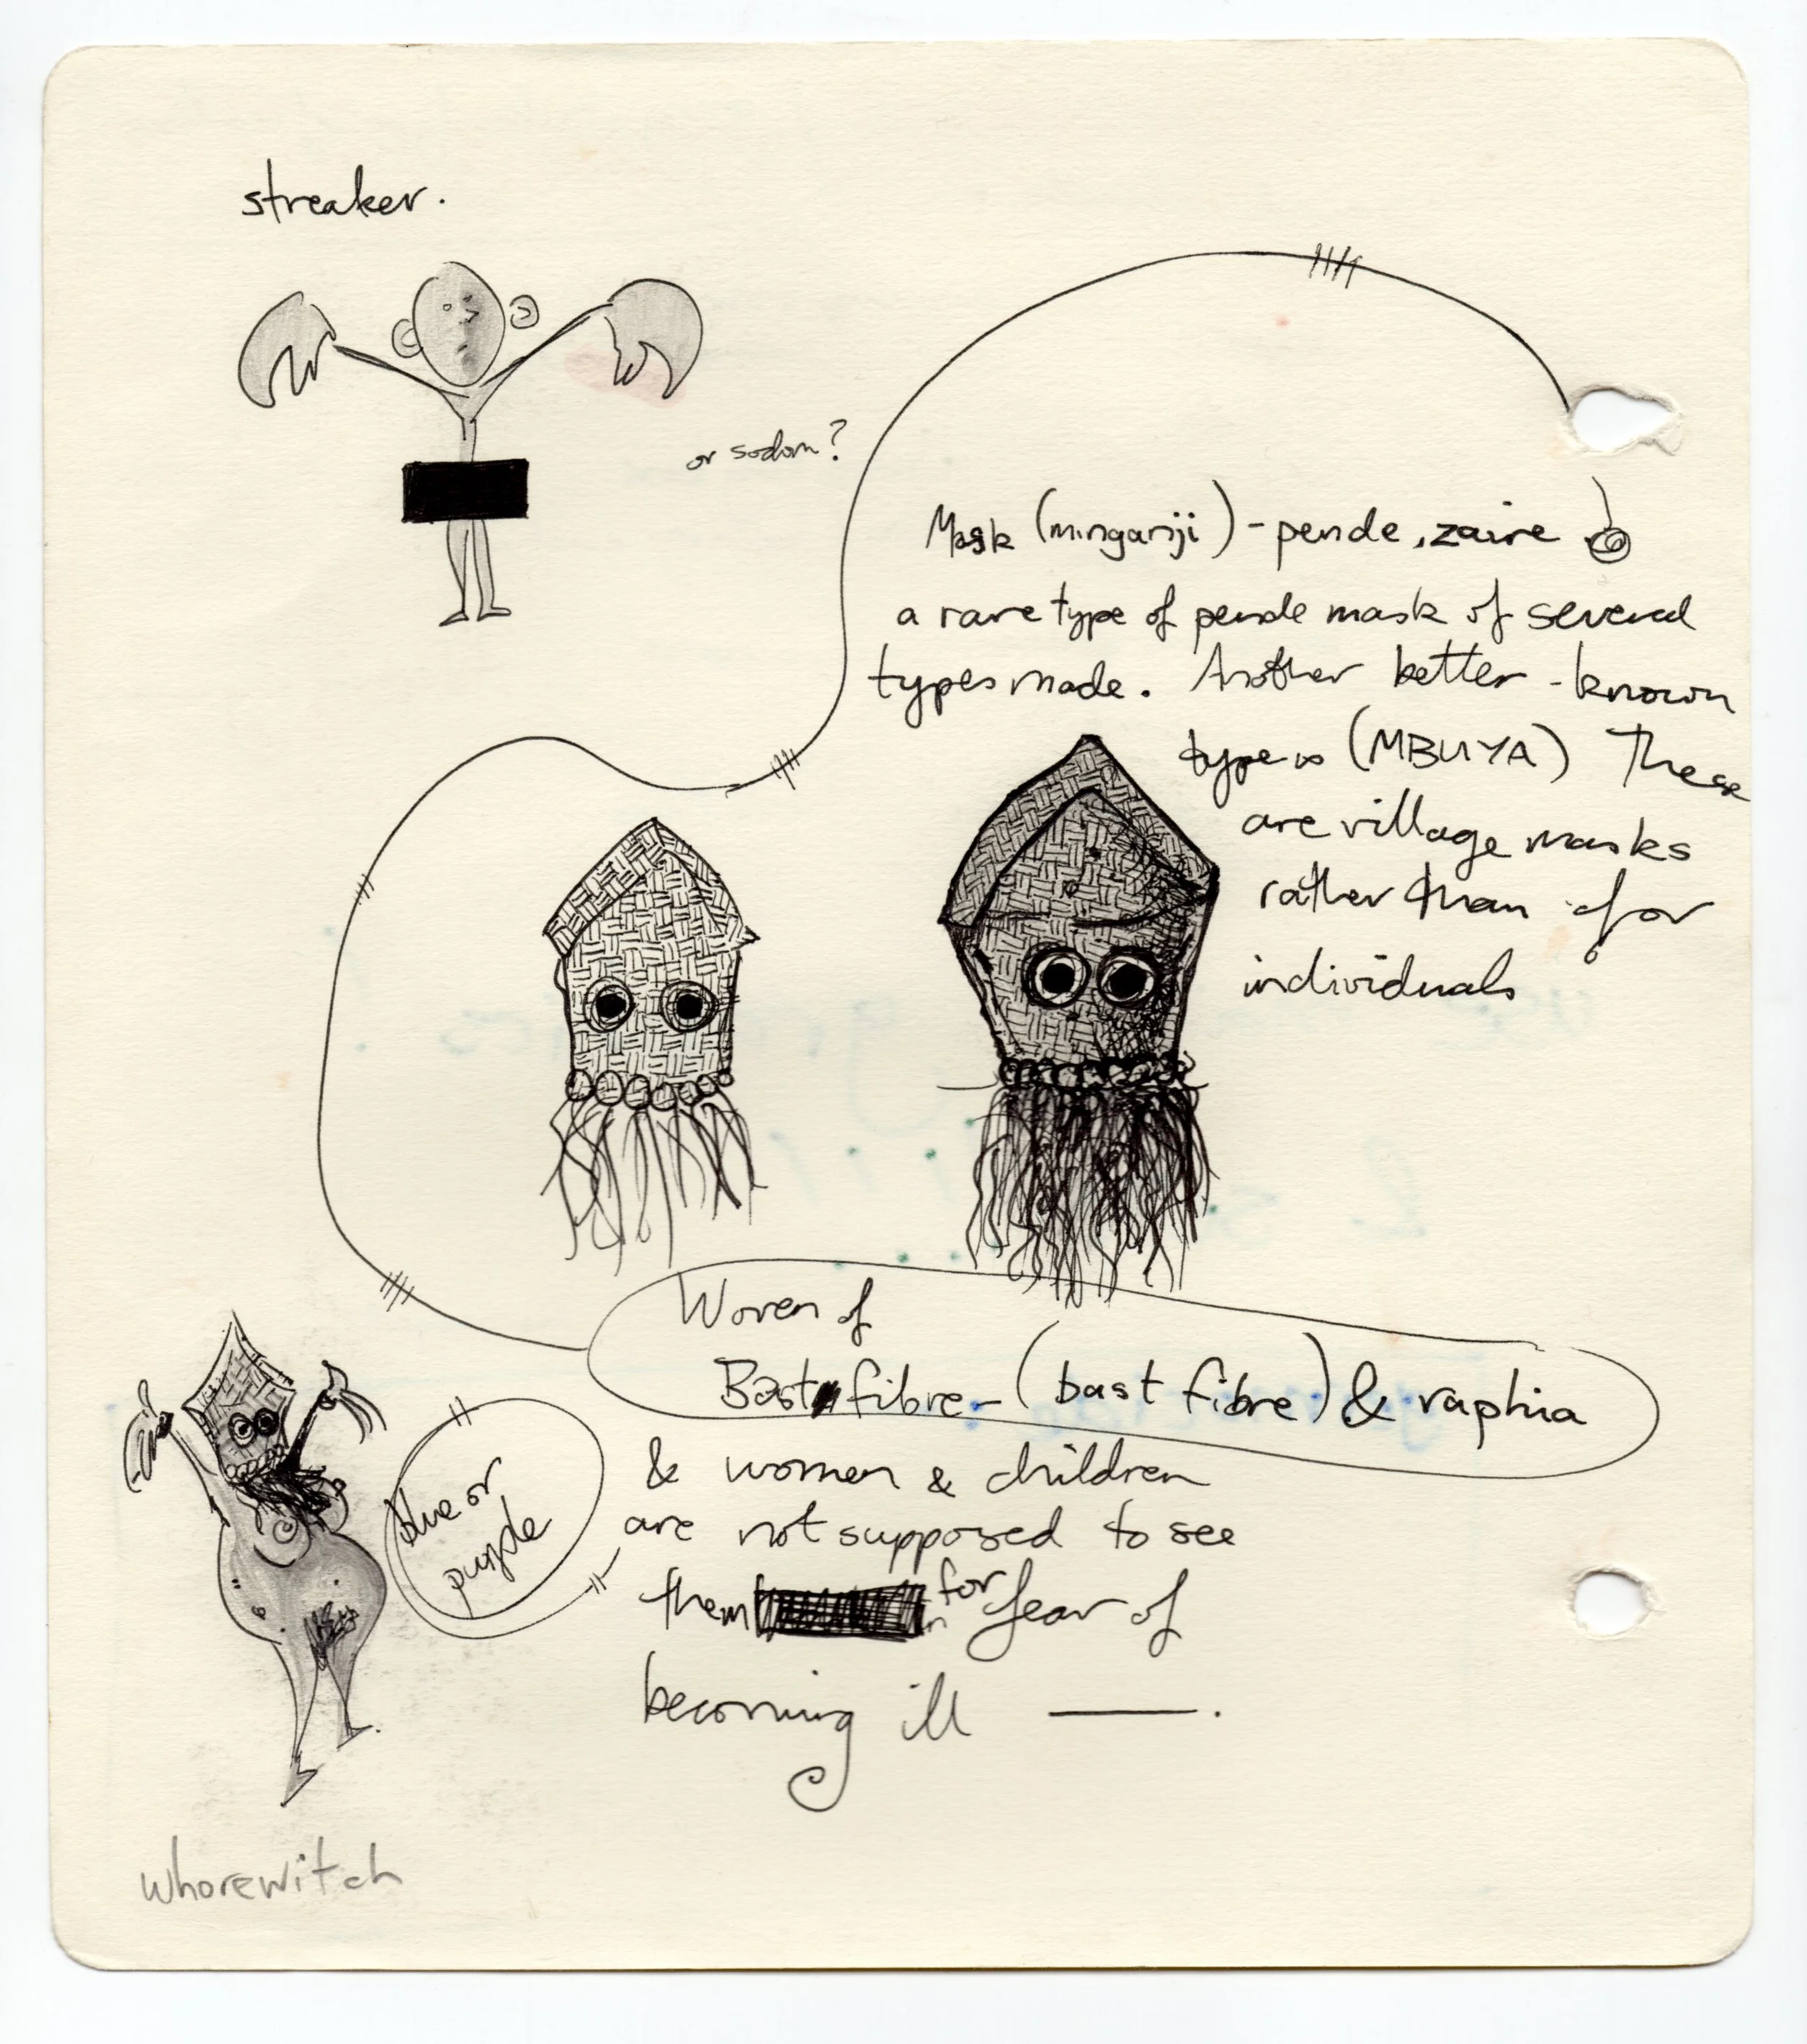 streaker.
or sodom?
Mask (minganji) - pende, zaire
a rare type of pende mask of several
types made. Another better-known
type is (MBUYA) These
are village masks
rather than for
individuals
Woven of
Bast fibre - (bast fibre) & raphia
& women & children
are not supposed to see
them for fear of
becoming ill ——.
blue or
purple
whorewitch